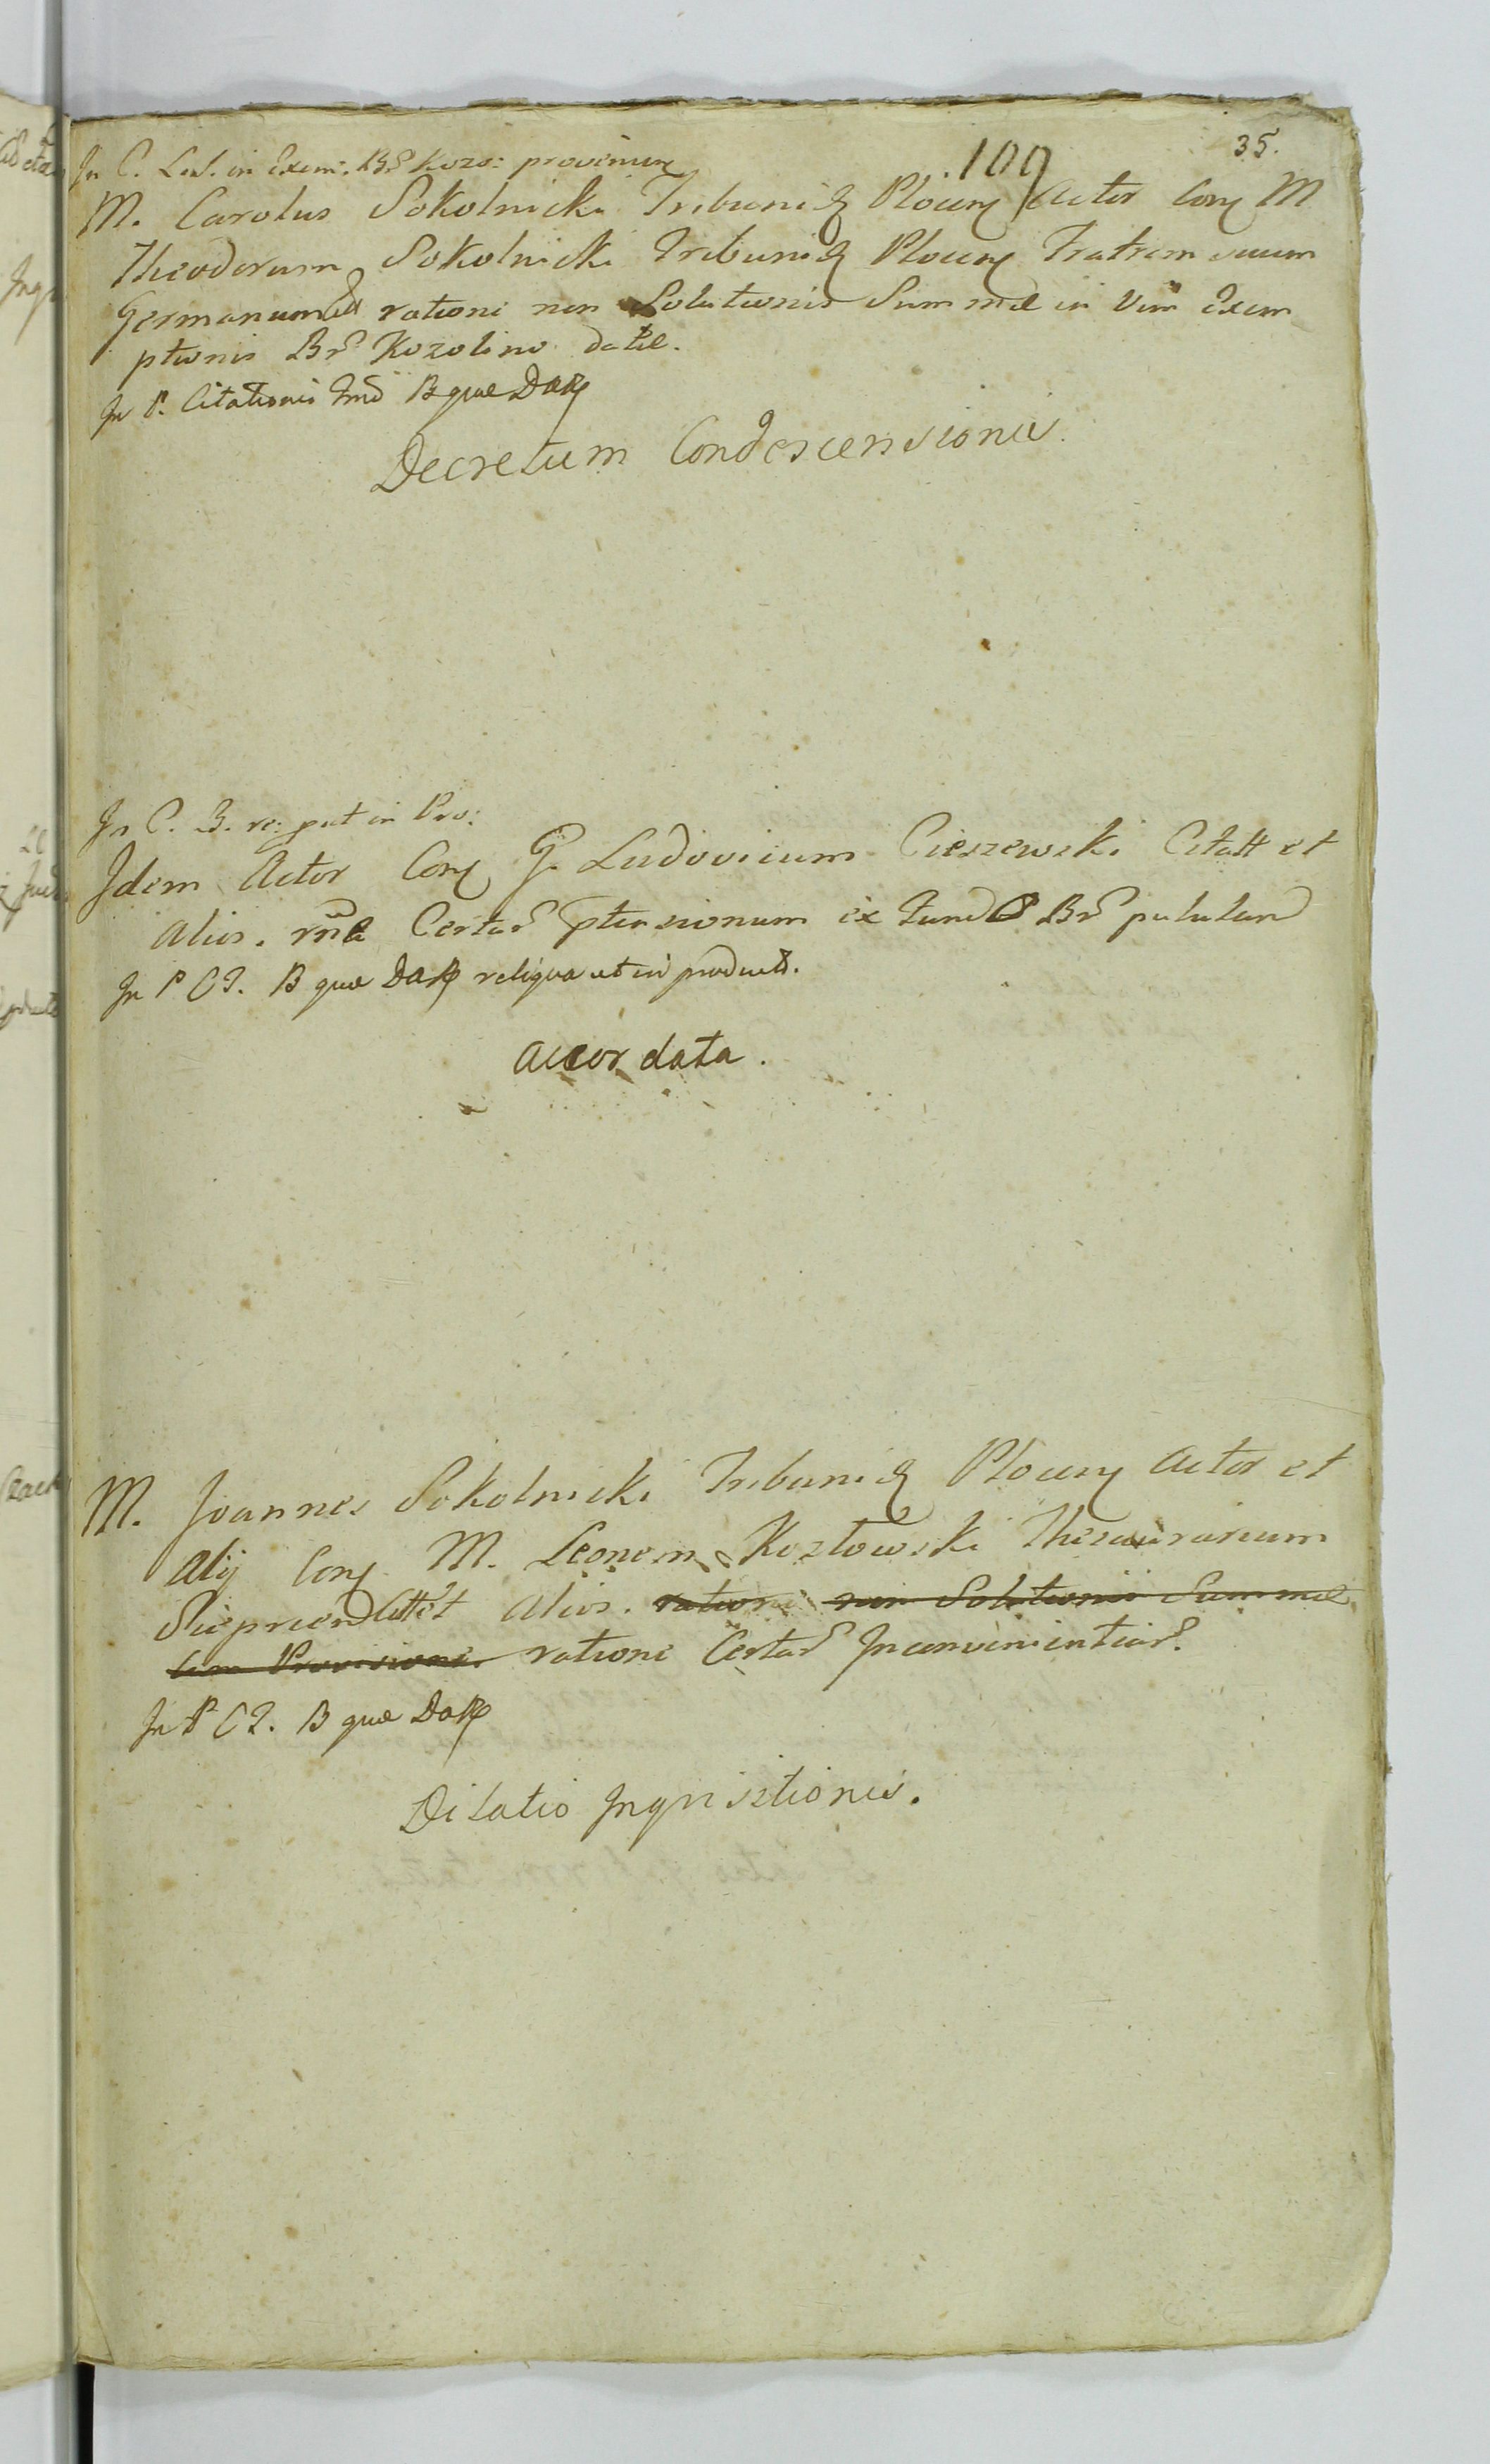 109
35.
In C. L. S. in Exem: Br̃ Kozo: provenien
M. Carolus Sokolnicki Tribunid Plocen Actor Con M
Theodorum Sokolnicki Tribunid Plocen Fratrem suum
Germanum ratione non Solutionis Summæ in Vim Exem
ptionis Br̃ Kozolino datæ.
In P. Citationis B quæ DaR
Decretum Condescensionis.
In C. B. re: put in Pro:
Idem Actor Con G. Ludovicum Cieszewski Citatt et
Alios. rñe Certar ptensionum ex Fund Br̃ pululan
In P C B quæ DaR reliqua ut in product.
Accordata.
M. Joannes Sokolnicki Tribunid Plocen Actor et
Alij Con M. Leonem Kozłowski Thesaurarium
Siepricen Citt et Alios. ratione non Solutionis Summæ
cum Provisione ratione Certar Inconvenientiar.
In P C B quæ DaR
Dilatio Inqvisitionis.